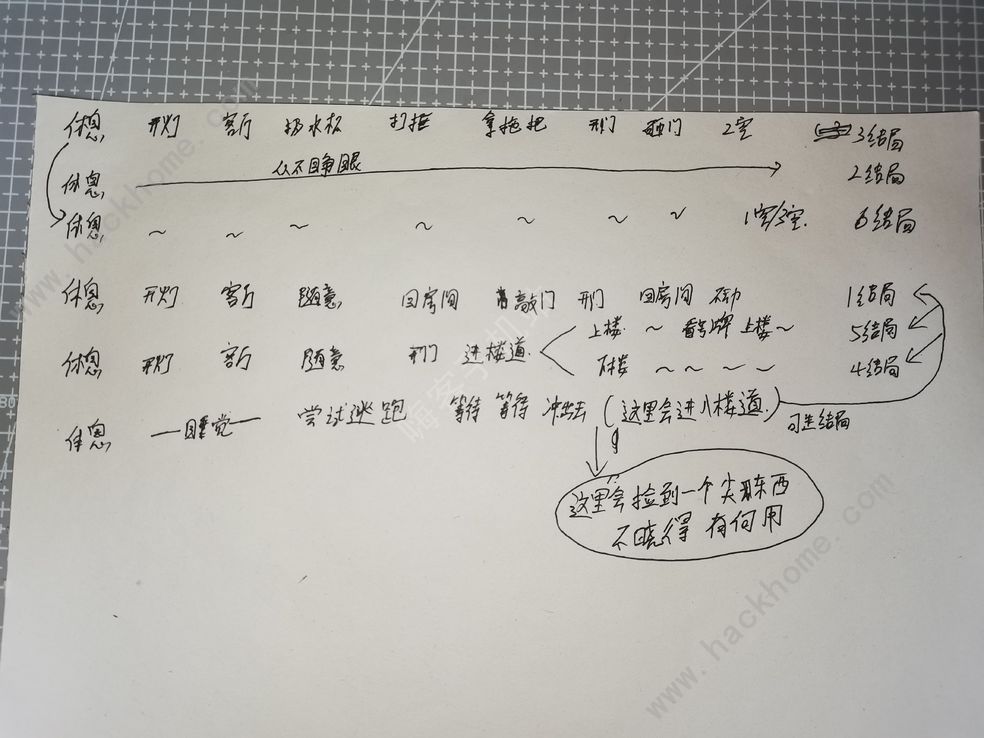 休息 开灯 客厅 扔水杯 打拒 拿拖把 开门 砸门 2室 3结局
从不睁眼
休息 2结局
休息 ~ ~ ~ ~ ~ ~ ~ 1室/3室 6结局
休息 开灯 客厅 随意 回房间 敲门 开门 回房间 1结局
上楼 ~ 看号牌 上楼~ 5结局
休息 开灯 客厅 随意 开门 进楼道
下楼 ~ ~ ~ ~ 4结局
休息 —睡觉— 尝试逃跑 等待 等待 冲出去 (这里会进入楼道) 可走结局
这里会捡到一个尖东西
不晓得 有何用
www.hackhome.com
嗨客手机站
www.hackhome.com